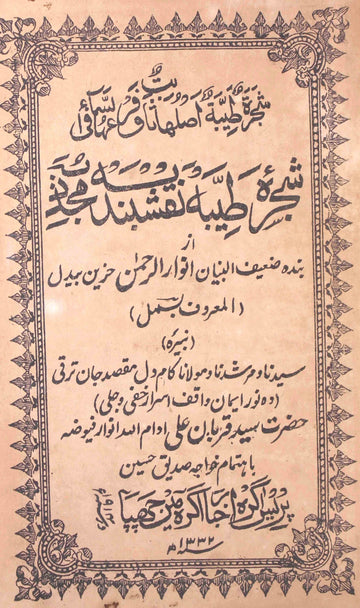 شجرة طيبة اصلها ثابت وفرعها في السماء
شجرۂ طیبہ نقشبندیہ مجددیہ
از
بندہ ضعیف البنیان انوار الرحمٰن حزین بیدل
(المعروف بسمل)
(نبیرہ)
سیدنا و مرشدنا و مولانا کام دل مقصد جان ترقی
(دہ نور ایمان واقف اسرار خفی و جلی)
حضرت سید قربان علی ادام اللہ انوار فیوضہ
باہتمام خواجہ صدیق حسین
پریس آگرہ اخبار آگرہ مین چھپا
۱۳۳۲ھ